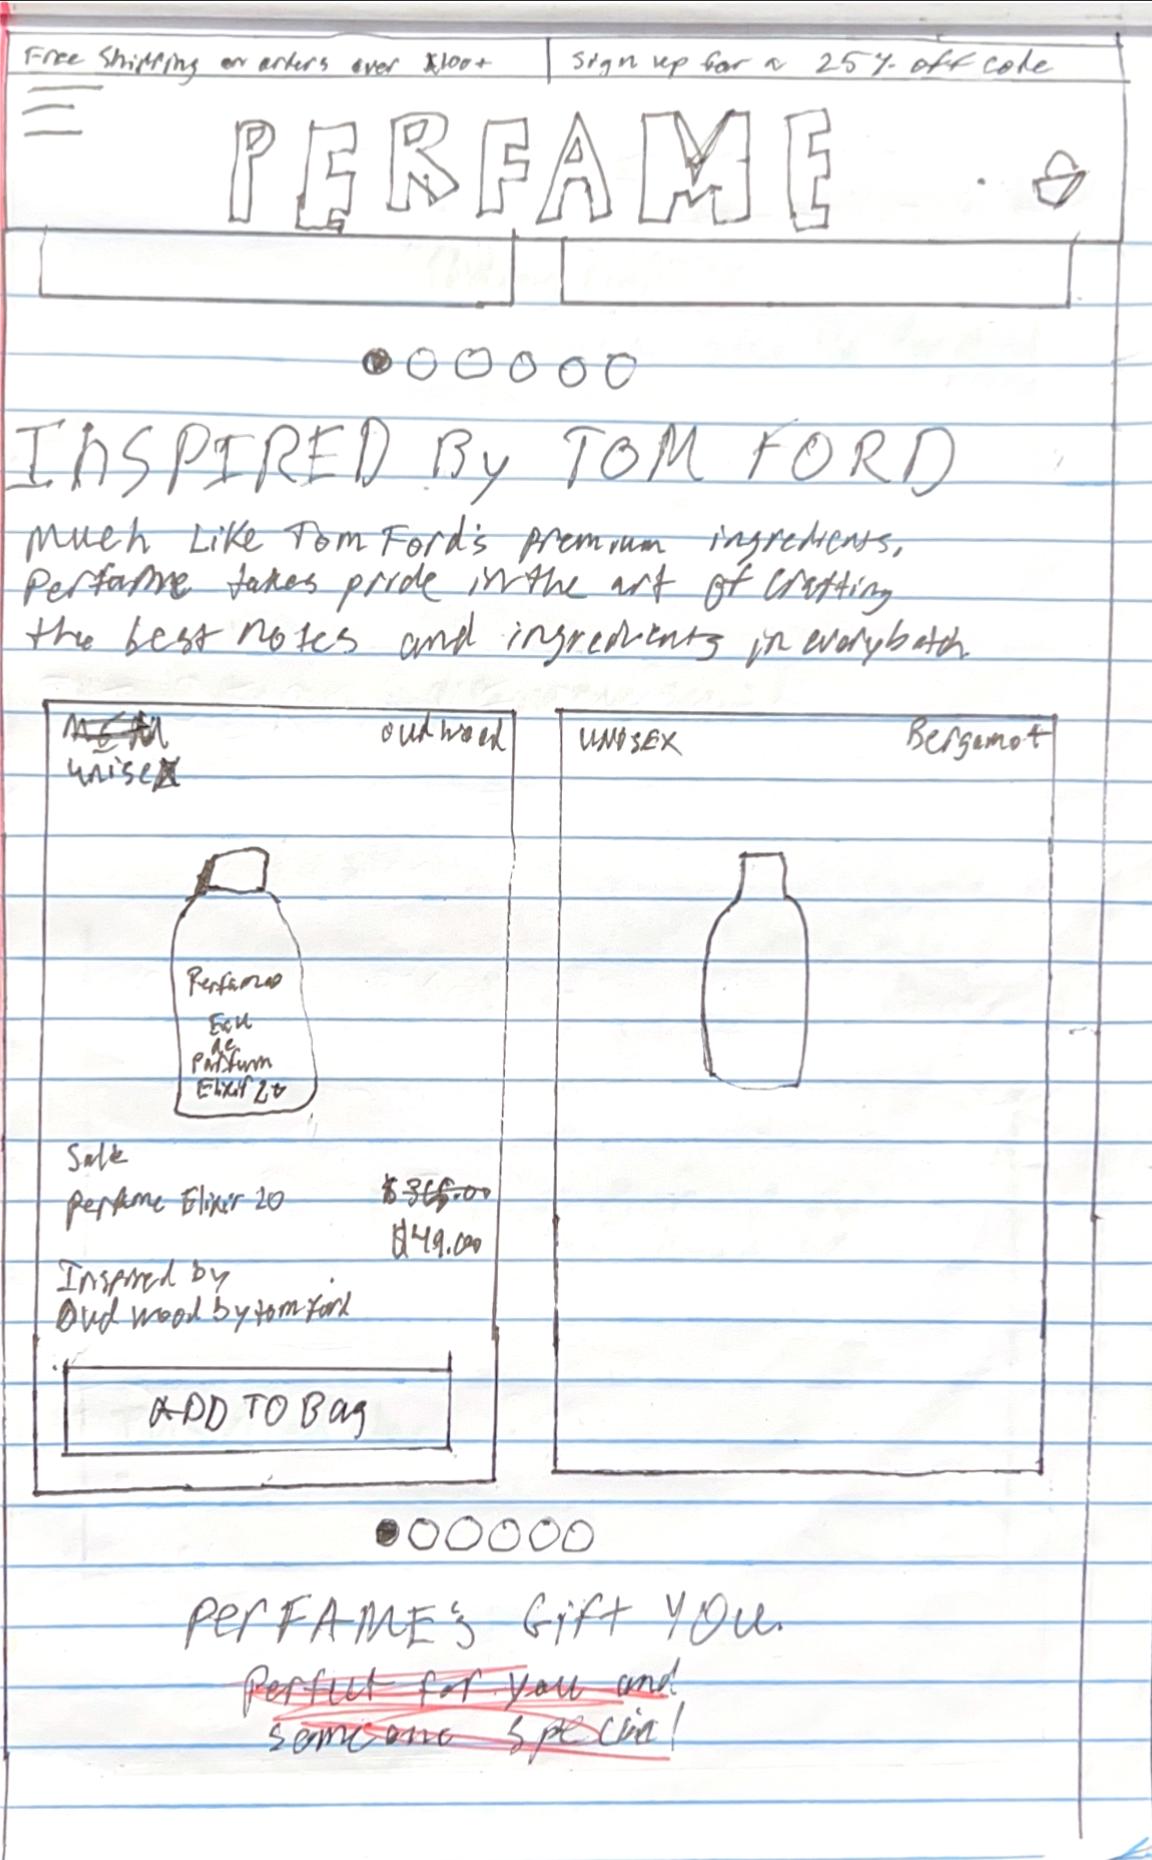 Free Shipping on orders over $100+
Sign up for a 25% off code
PERFAME
INSPIRED By TOM FORD
Much Like Tom Ford's premium ingredients,
Perfame takes pride in the art of Crafting
the best notes and ingredients in every batch
MEN
unisex
oud wood
UNISEX
Bergamot
Perfame
Eau
de
Parfum
Elixir 20
Sale
perfame Elixir 20
$365.00
$49.00
Inspired by
Oud wood by tom ford
ADD TO Bag
PerFAME's Gift YOU.
Perfect for you and
someone special